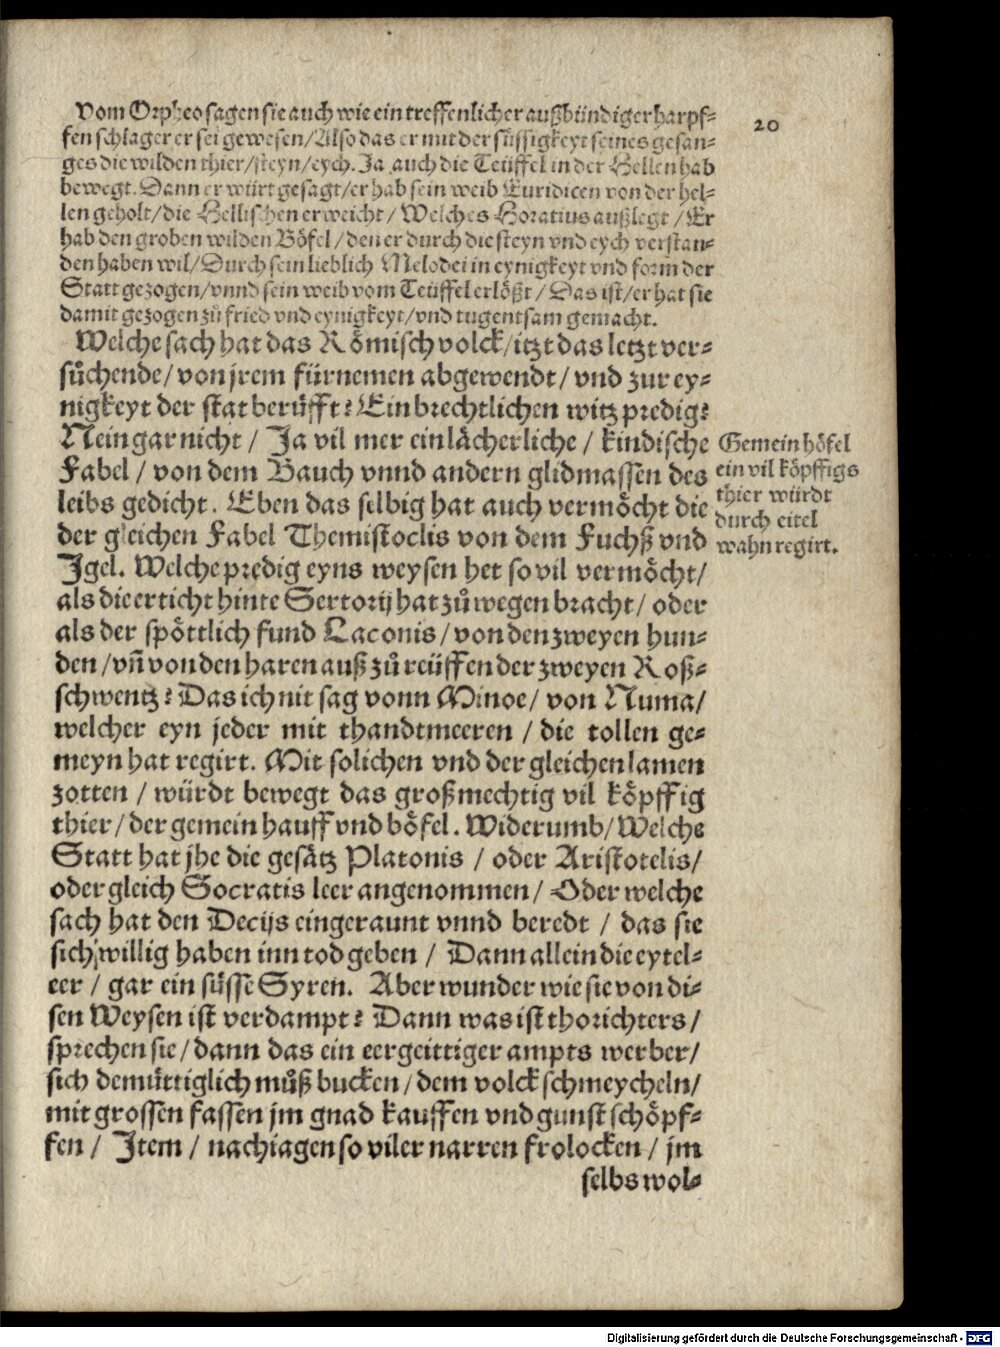 20
Vom Orpheo sagen sie auch wie ein treffenlicher außbündiger harpf⸗
fenschlager er sei gewesen/Also das er mit der süssigkeyt seines gesan⸗
ges die wilden thier/steyn/eych. Ja auch die Teüffel in der Hellen hab
bewegt. Dann er würt gesagt/er hab sein weib Euridicen von der hel⸗
len geholt/die Hellischen erweicht/Welches Horatius außlegt/Er
hab den groben wilden Böfel/den er durch die steyn vnd eych verstan⸗
den haben wil/Durch sein lieblich Melodei in eynigkeyt vnd form̃ der
Statt gezogen/vnnd sein weib vom Teüffel erlößt/Das ist/er hat sie
damit gezogen zů fried vnd eynigkeyt/vnd tugentsam gemacht.
Welche sach hat das Römisch volck/itzt das letzt ver⸗
sůchende/von jrem fürnemen abgewendt/vnd zur ey⸗
nigkeyt der stat berůfft? Ein brechtlichen witz predig?
Nein gar nicht/Ja vil mer ein lächerliche/kindische
Fabel/von dem Bauch vnnd andern glidmassen des
leibs gedicht. Eben das selbig hat auch vermöcht die
der gleichen Fabel Themistoclis von dem Fuchß vnd
Jgel. Welche predig eyns weysen het so vil vermöcht/
als die erticht hinte Sertorij hat zů wegen bracht/oder
als der spöttlich fund Laconis/von den zweyen hun⸗
den/vñ von den haren auß zů reüffen der zweyen Roß⸗
schwentz? Das ich nit sag vonn Minoe/von Numa/
welcher eyn jeder mit thandtmeeren/die tollen ge⸗
meyn hat regirt. Mit solichen vnd der gleichen lamen
zotten/würdt bewegt das großmechtig vil köpffig
thier/der gemein hauff vnd böfel. Widerumb/Welche
Statt hat jhe die gesätz Platonis/oder Aristotelis/
oder gleich Socratis leer angenommen/Oder welche
sach hat den Decijs eingeraunt vnnd beredt/das sie
sich willig haben inn tod geben/Dann allein die eytel⸗
eer/gar ein süsse Syren. Aber wunder wie sie von di⸗
sen Weysen ist verdampt? Dann was ist thorichters/
sprechen sie/dann das ein eergeittiger ampts werber/
sich demüttiglich můß bucken/dem volck schmeycheln/
mit grossen fassen jm gnad kauffen vnd gunst schöpf⸗
fen/Jtem/nachiagen so viler narren frolocken/jm
selbs wol⸗
Gemein böfel
ein vil köpffigs
thier würdt
durch eitel
wahn regirt.
Digitalisierung gefördert durch die Deutsche Forschungsgemeinschaft - DFG